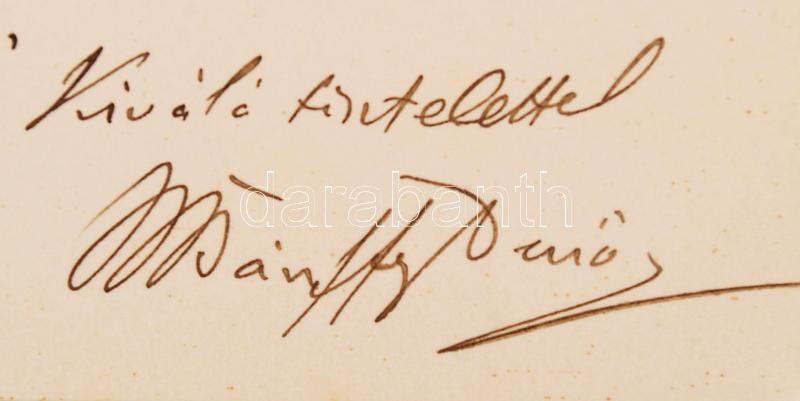 Kiváló tisztelettel
Bánffy Dezső
darabanth